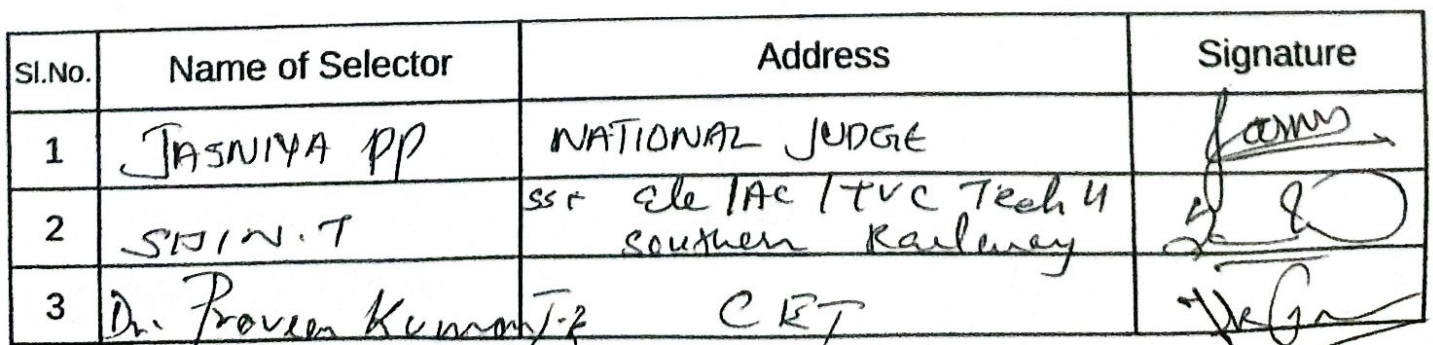 Sl.No. Name of Selector Address Signature
1 JASNIYA PP NATIONAL JUDGE
2 SHIN.T SSE Ele/AC/TVC Tech 4
Southern Railway
3 Dr. Praveen Kumar J.R CET